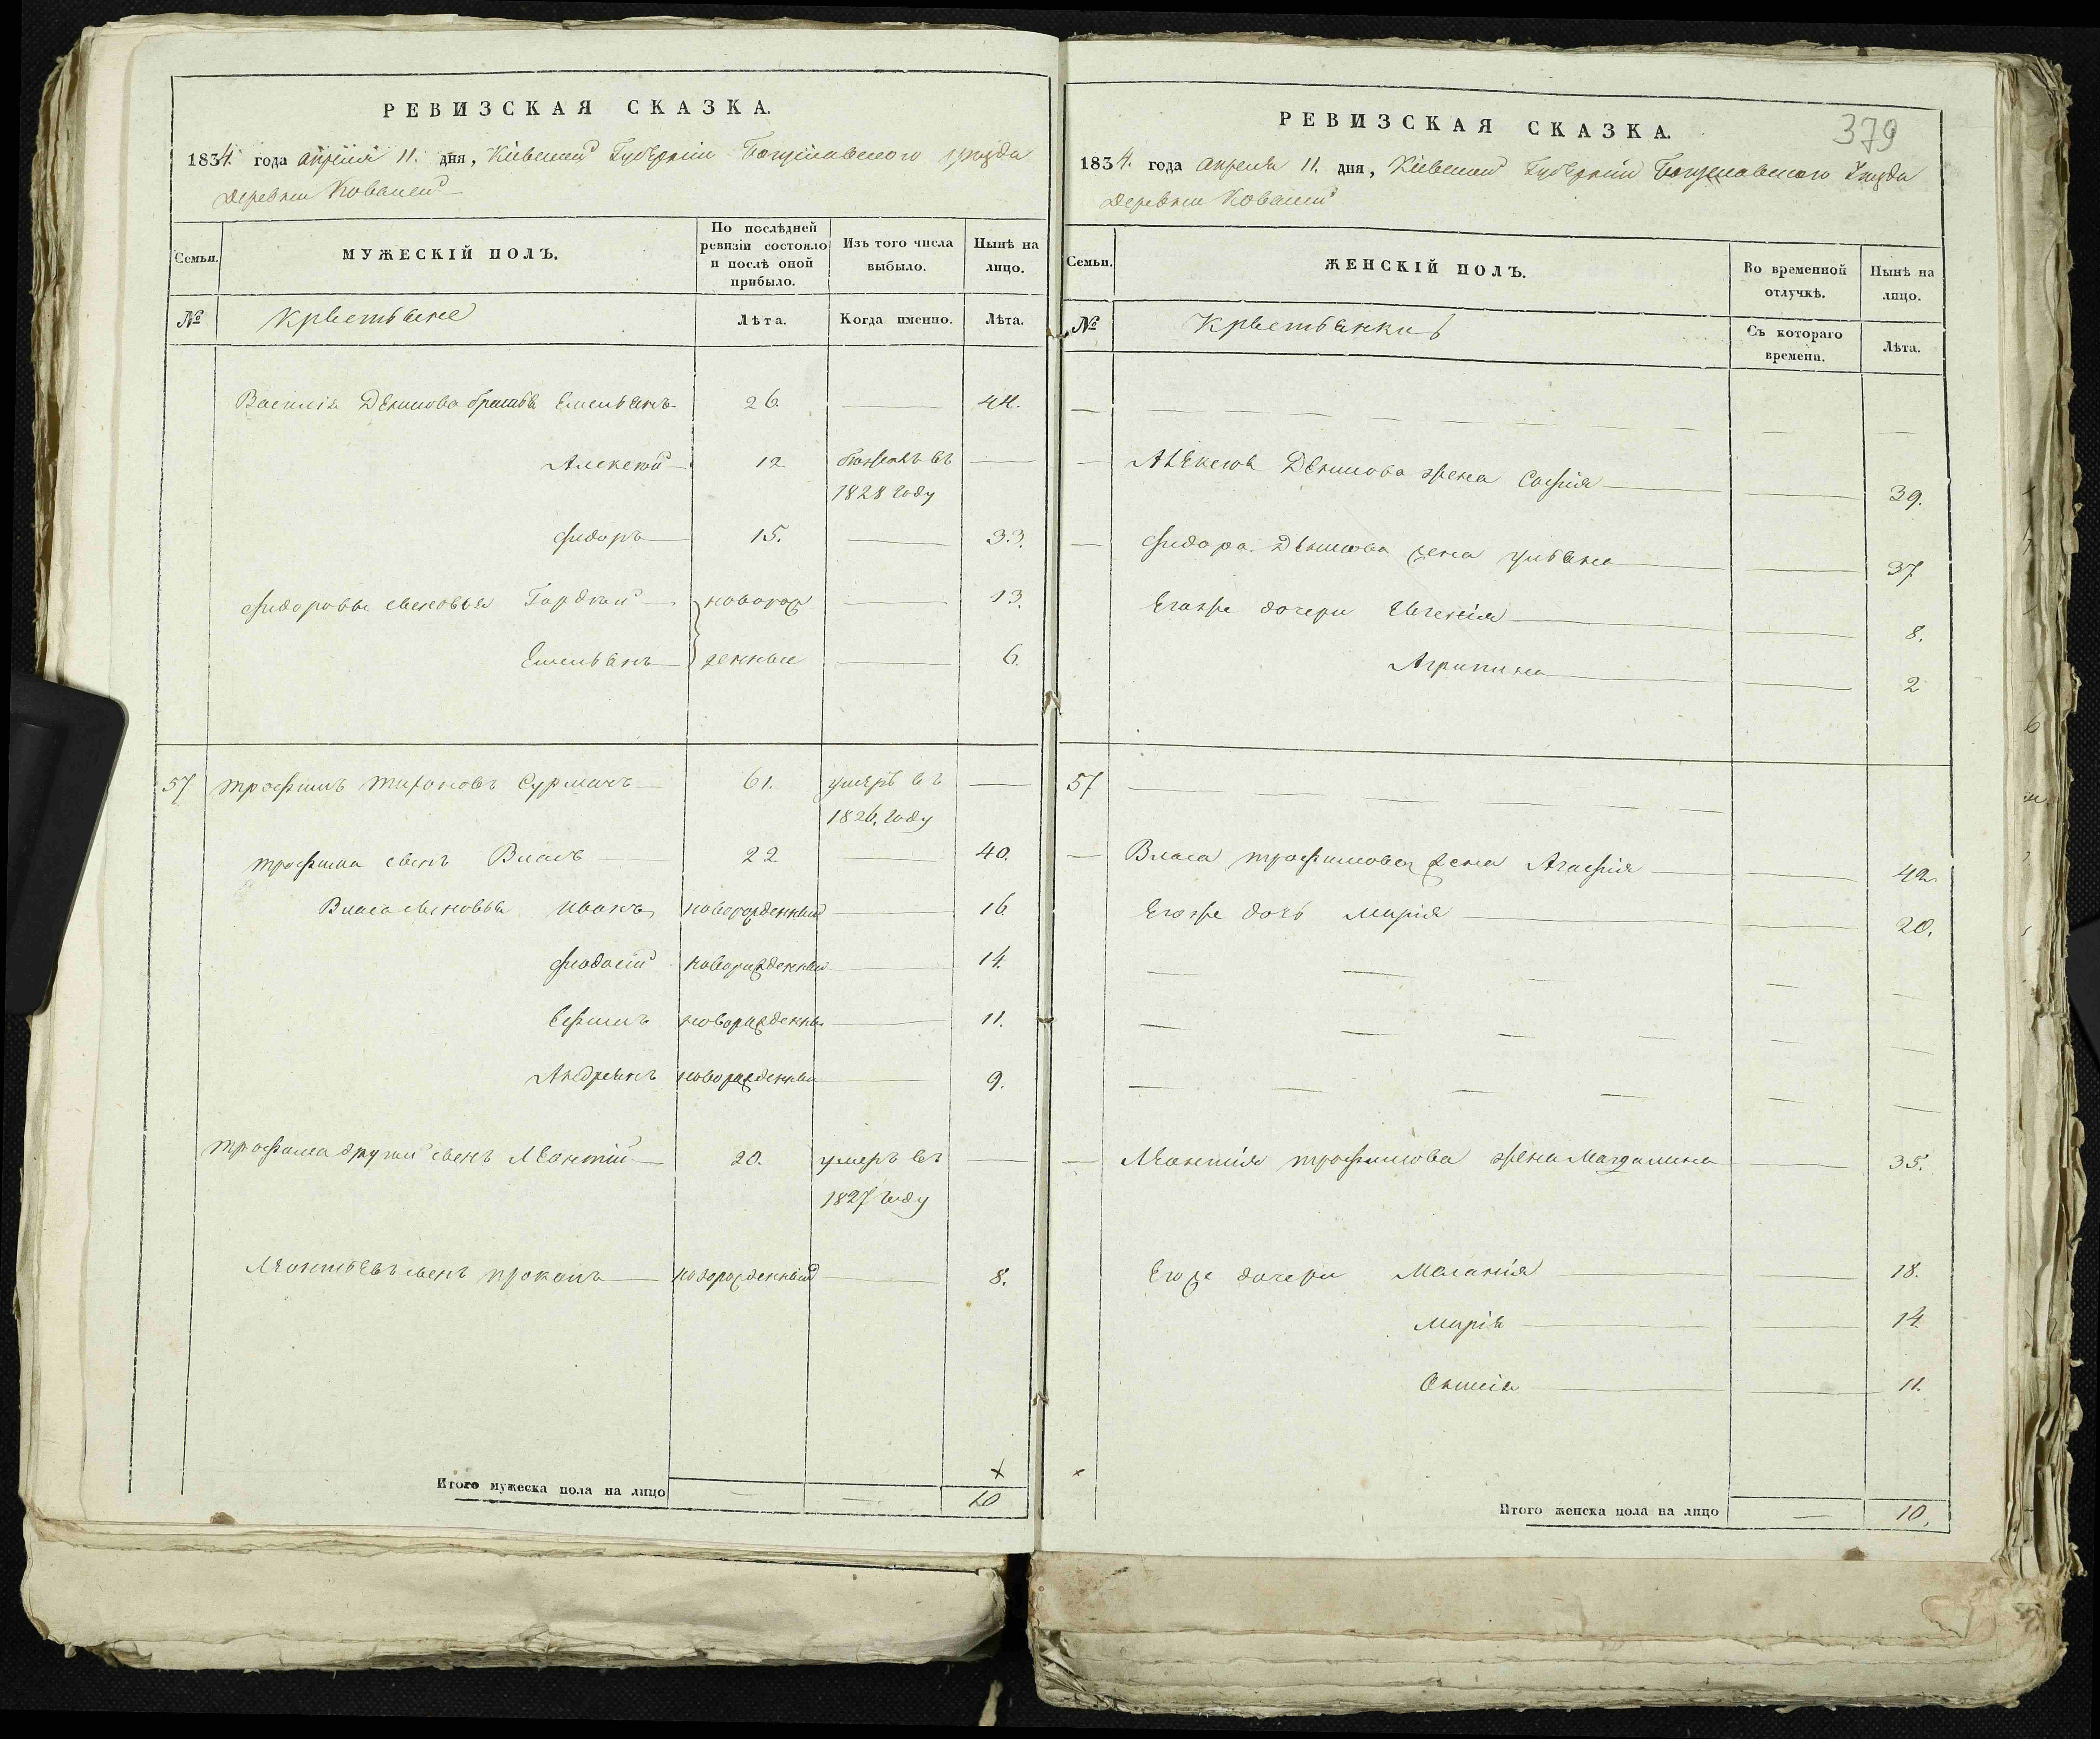 РЕВИЗСКАЯ СКАЗКА.
1834. года апреля 11. дня, Кіевской Губерніи Богуславского уезда
деревни Ковалей
Семьи. МУЖЕСКІЙ ПОЛЪ. По послѣдней ревизіи состояло и послѣ оной прибыло. Изъ того числа выбыло. Нынѣ на лицо.
№ Крѣстьяне Лѣта. Когда именно. Лѣта.
Василія Дѣмкова братья Емельянъ 26. 44.
Алексей 12 бѣжалъ въ
1828 году
Фидоръ 15. 33.
Фидоровы сыновья Гордѣй новорож 13.
Емельянъ денные 6.
57 Трофимъ Тихоновъ Сурмачъ 61. умеръ въ
1826. году
Трофима сынъ Власъ 22 40.
Власа сыновья Иванъ новорожденный 16
Фиодосій новорожденный 14.
Ефимъ новорожденны 11.
Андреянъ новорожденны 9.
Трофима другий сынъ Лѣонтий 20. умеръ въ
1827 году
Лѣонтьевъ сынъ Прокопъ новорожденный 8.
Итого мужеска пола на лицо 10
379
РЕВИЗСКАЯ СКАЗКА.
1834. года апреля 11. дня, Кіевской Губерніи Богуславского Уезда
деревни Ковалей
Семьи. ЖЕНСКІЙ ПОЛЪ. Во временной отлучкѣ. Нынѣ на лицо.
№ Крѣстьянки Съ котораго времени. Лѣта.
Алѣксея Дѣмкова жена Софія 39.
Фидора Дѣмкова жена Ульяна 37
Егожъ дочери Евгенія 8.
Агрипина 2
57
Власа Трофимова жена Агафія 42
Егожъ дочь Марія 20.
Лѣонтія Трофимова жена Магдалина 35.
Егоже дочери Маланія 18.
Марія 14
Оксеія 11.
Итого женска пола на лицо 10.